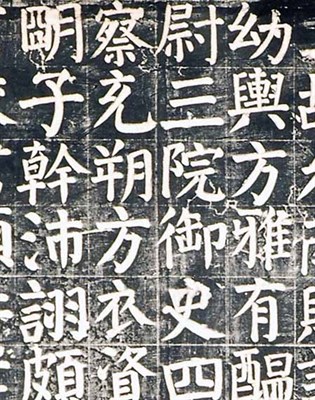 幼輿方雅有醞
尉三院御史四
察充朔方衣資
朙子幹沛詡頗